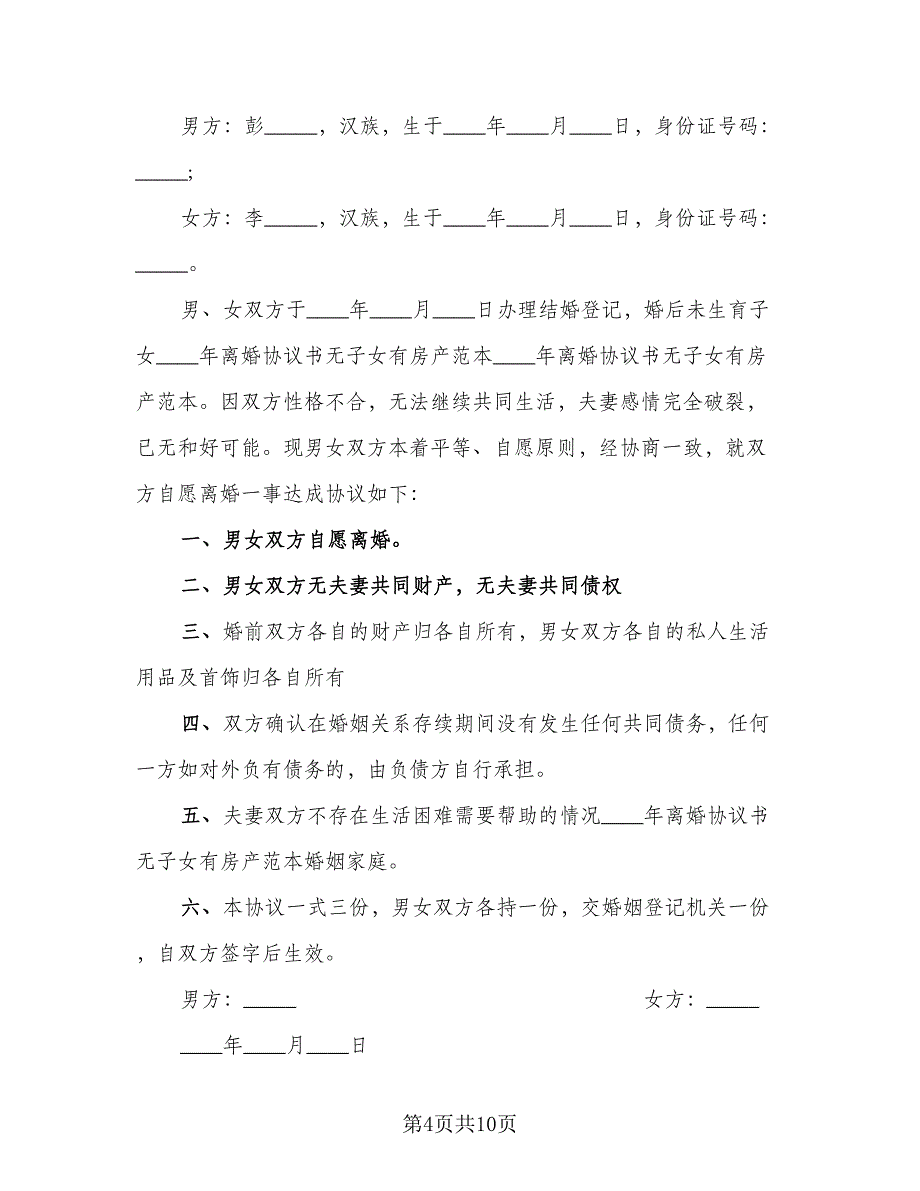 男方：彭_____，汉族，生于____年____月____日，身份证号码：
_____;
女方：李_____，汉族，生于____年____月____日，身份证号码：
_____。
男、女双方于____年____月____日办理结婚登记，婚后未生育子
女____年离婚协议书无子女有房产范本____年离婚协议书无子女有房
产范本。因双方性格不合，无法继续共同生活，夫妻感情完全破裂，
已无和好可能。现男女双方本着平等、自愿原则，经协商一致，就双
方自愿离婚一事达成协议如下：
一、男女双方自愿离婚。
二、男女双方无夫妻共同财产，无夫妻共同债权
三、婚前双方各自的财产归各自所有，男女双方各自的私人生活
用品及首饰归各自所有
四、双方确认在婚姻关系存续期间没有发生任何共同债务，任何
一方如对外负有债务的，由负债方自行承担。
五、夫妻双方不存在生活困难需要帮助的情况____年离婚协议书
无子女有房产范本婚姻家庭。
六、本协议一式三份，男女双方各持一份，交婚姻登记机关一份
，自双方签字后生效。
男方：_____ 女方：_____
____年____月____日
第4页共10页